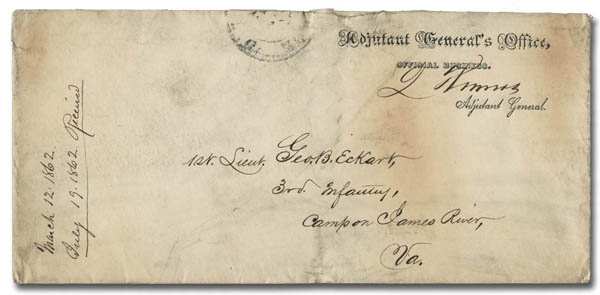 Adjutant General's Office,
OFFICIAL BUSINESS.
L Thomas
Adjutant General.
1st. Lieut. Geo. B. Eckart,
3rd. Infantry,
Camp on James River,
Va.
March 12. 1862.
July 19. 1862. Received